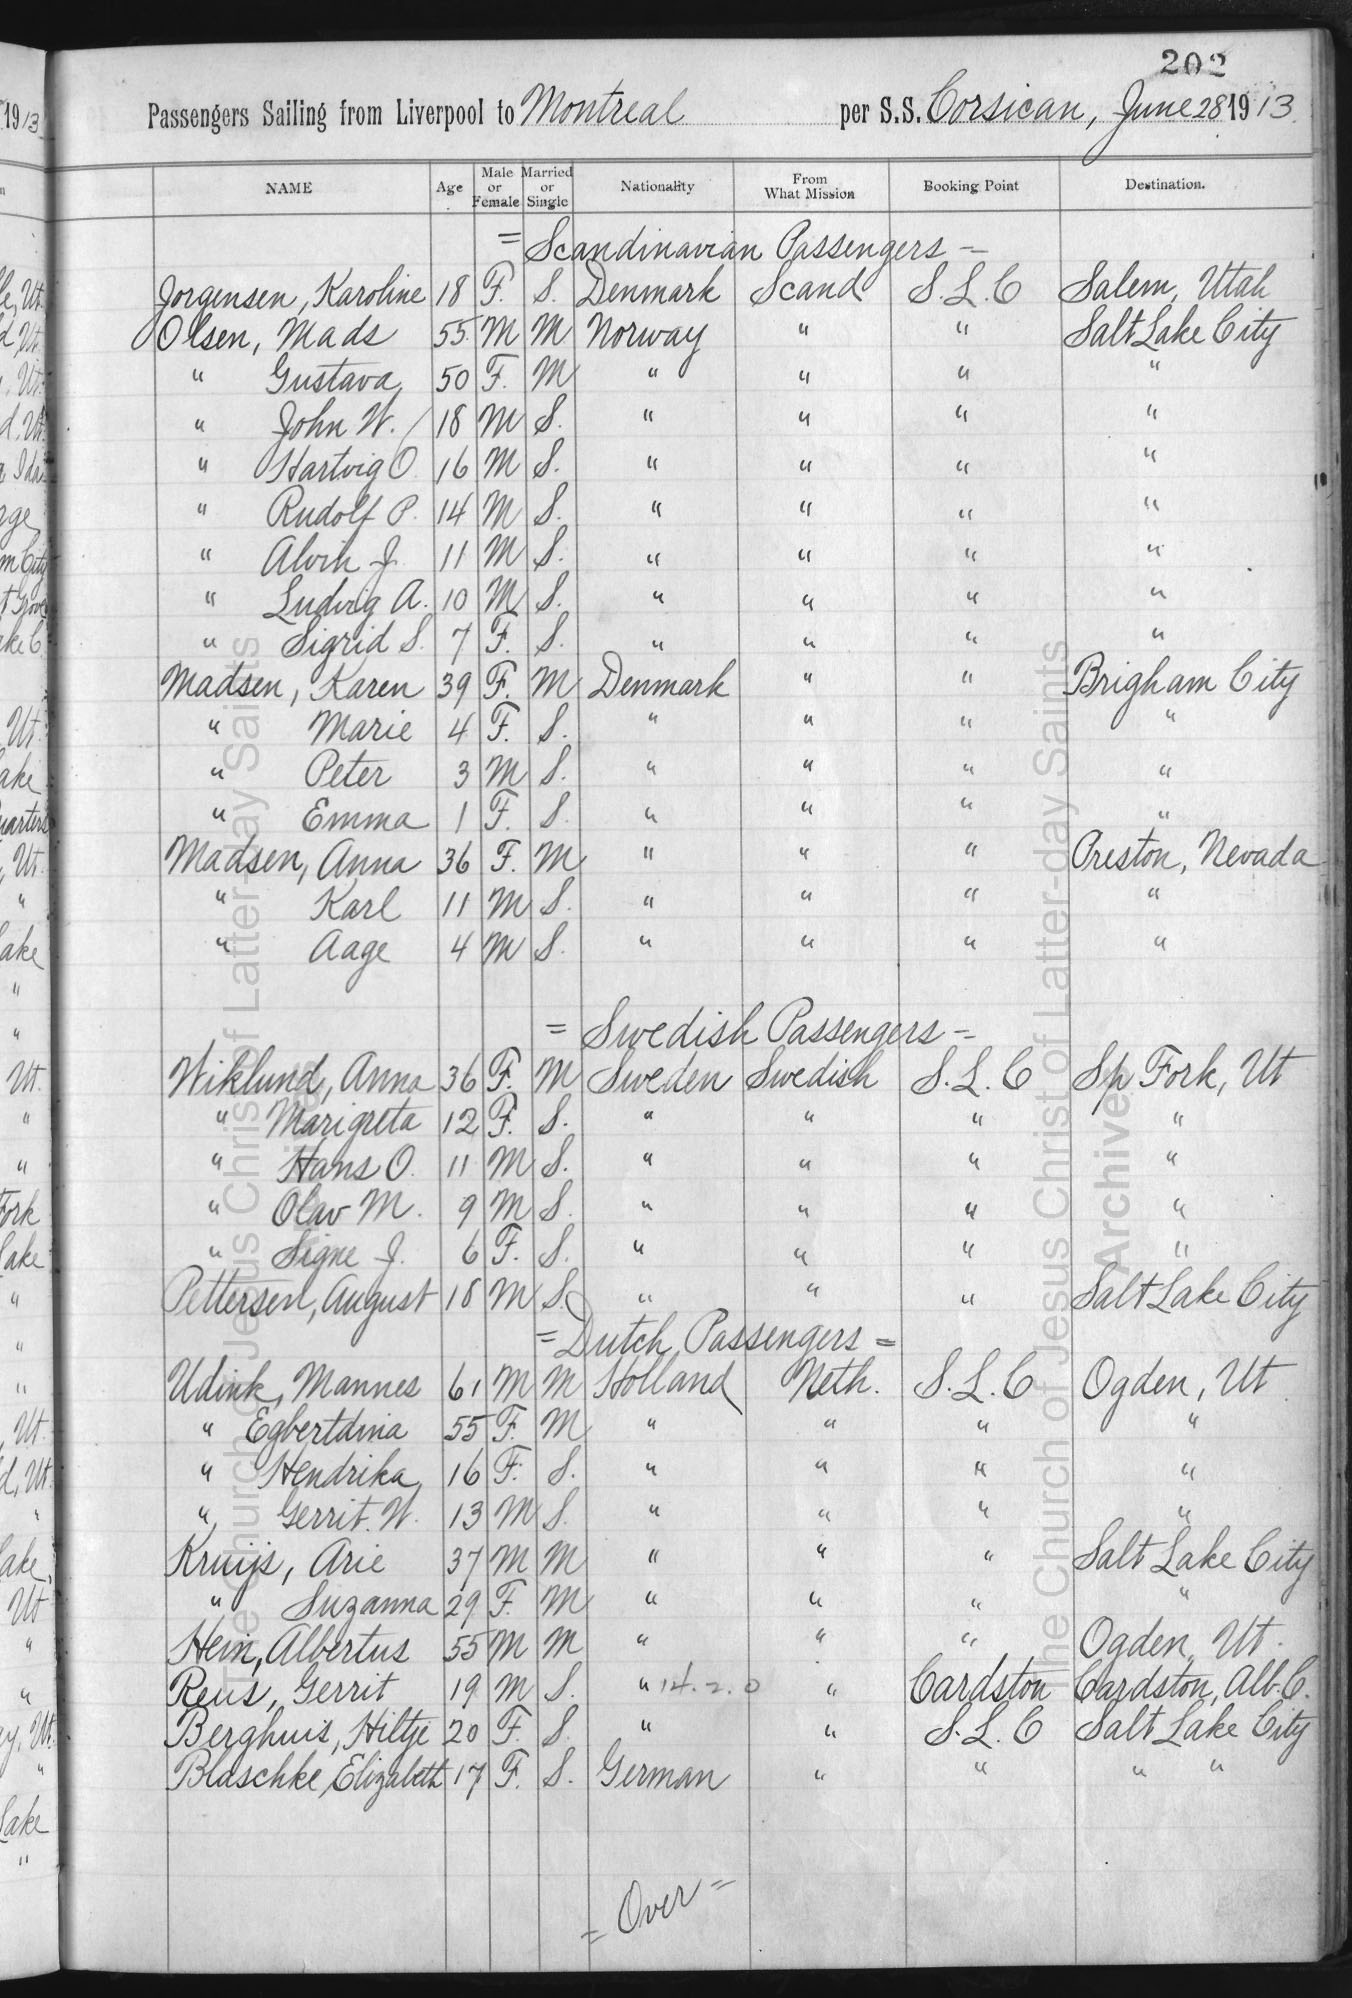 202
Passengers Sailing from Liverpool to Montreal per S.S. Corsican, June 28 1913
NAME Age Male or Female Married or Single Nationality From What Mission Booking Point Destination.
= Scandinavian Passengers =
Jorgensen, Karoline 18 F. S. Denmark Scand S.L.C Salem, Utah
Olsen, Mads 55 M M Norway " " Salt Lake City
" Gustava 50 F. M " " " "
" John W. 18 M S. " " " "
" Hartvig O. 16 M S. " " " "
" Rudolf P. 14 M S. " " " "
" Alvin J. 11 M S. " " " "
" Ludvig A. 10 M S. " " " "
" Sigrid S. 7 F. S. " " " "
Madsen, Karen 39 F. M Denmark " " Brigham City
" Marie 4 F. S. " " " "
" Peter 3 M S. " " " "
" Emma 1 F. S. " " " "
Madsen, Anna 36 F. M " " " Preston, Nevada
" Karl 11 M S. " " " "
" Aage 4 M S. " " " "
= Swedish Passengers =
Wiklund, Anna 36 F. M Sweden Swedish S.L.C Sp Fork, Ut
" Marigreta 12 F. S. " " " "
" Hans O. 11 M S. " " " "
" Olav M. 9 M S. " " " "
" Signe J. 6 F. S. " " " "
Pettersen, August 18 M S. " " " Salt Lake City
= Dutch Passengers =
Udink, Mannes 61 M M Holland Neth. S.L.C Ogden, Ut
" Egbertdina 55 F. M " " " "
" Hendrika 16 F. S. " " " "
" Gerrit. W. 13 M S. " " " "
Kruijs, Arie 37 M M " " " Salt Lake City
" Suzanna 29 F. M " " " "
Hein, Albertus 55 M M " " " Ogden, Ut.
Reus, Gerrit 19 M S. " 14.2.0 " Cardston Cardston, Alb. C.
Berghuis, Hiltje 20 F. S. " " S.L.C Salt Lake City
Blaschke, Elizabeth 17 F. S. German " " " "
= Over =
The Church of Jesus Christ of Latter-day Saints
The Church of Jesus Christ of Latter-day Saints
Archives